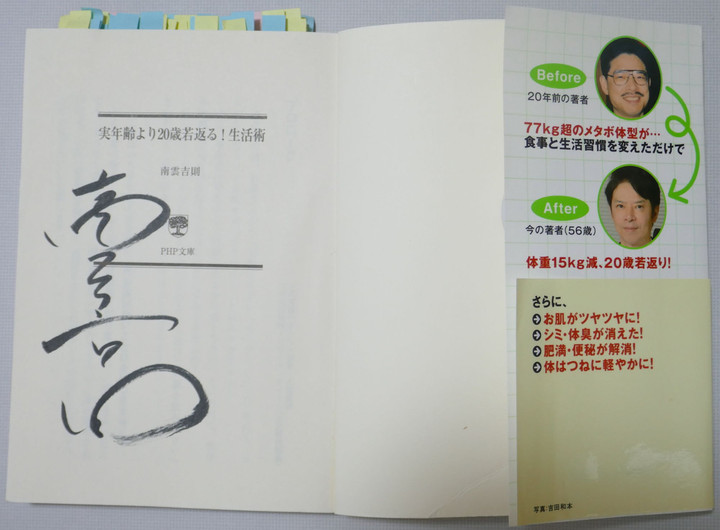 実年齢より20歳若返る!生活術
南雲吉則
PHP文庫
Before
20年前の著者
77kg超のメタボ体型が…
食事と生活習慣を変えただけで
After
今の著者(56歳)
体重15kg減、20歳若返り!
さらに、
お肌がツヤツヤに!
シミ・体臭が消えた!
肥満・便秘が解消!
体はつねに軽やかに!
写真:吉田和本